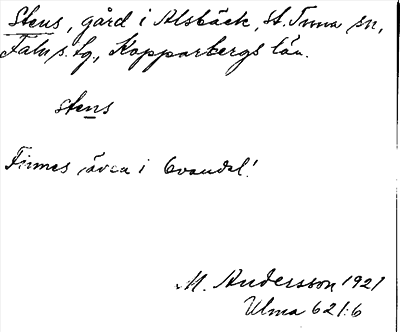 Stens, gård i Alsbäck, St. Tuna sn,
Falu s. tg., Kopparbergs län.
stens
Finnes även i
M. Andersson 1921
Ulma 621:6